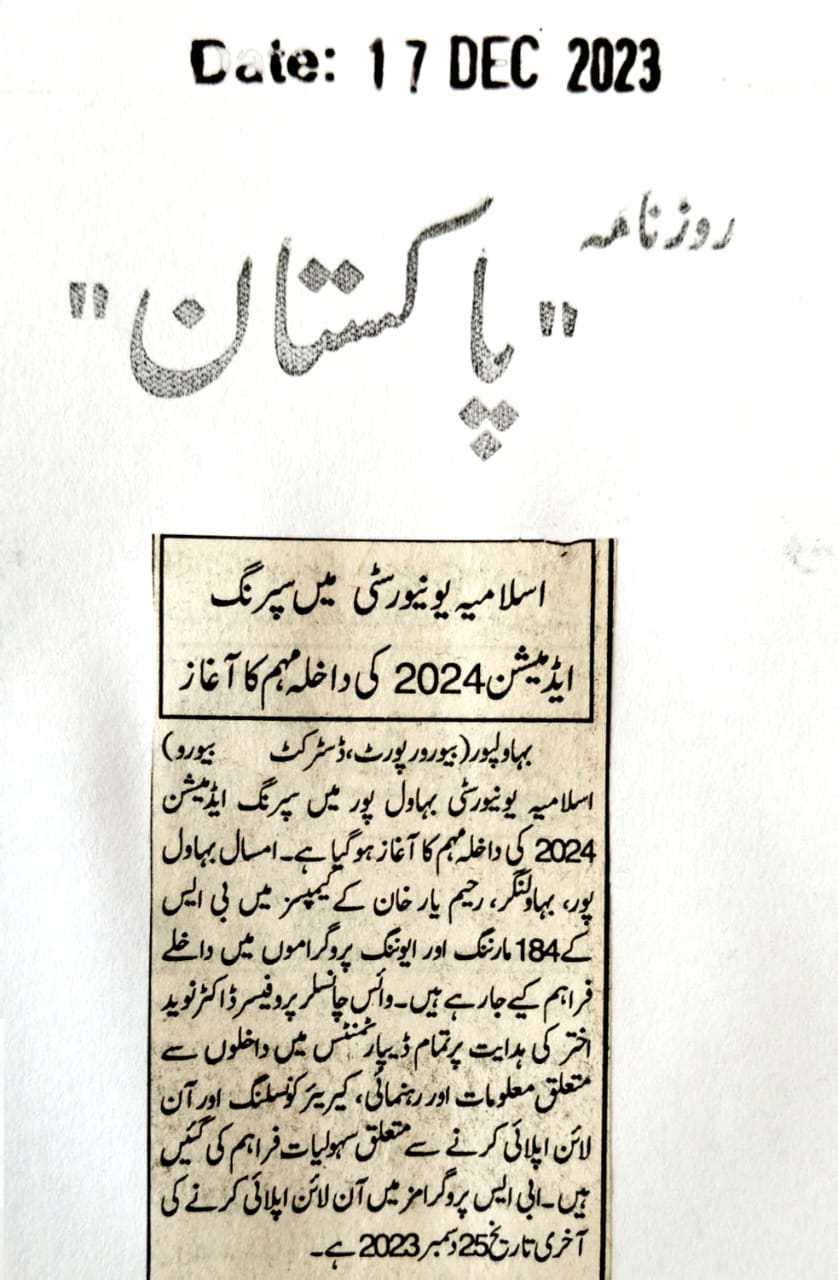 Date: 17 DEC 2023
روزنامہ
"پاکستان"
اسلامیہ یونیورسٹی میں سپرنگ
ایڈمیشن 2024 کی داخلہ مہم کا آغاز
بہاولپور (بیورورپورٹ، ڈسٹرکٹ بیورو)
اسلامیہ یونیورسٹی بہاول پور میں سپرنگ ایڈمیشن
2024 کی داخلہ مہم کا آغاز ہوگیا ہے۔ امسال بہاول
پور، بہاولنگر، رحیم یار خان کے کیمپسز میں بی ایس
کے 184 مارننگ اور ایوننگ پروگراموں میں داخلے
فراہم کیے جارہے ہیں۔ وائس چانسلر پروفیسر ڈاکٹر نوید
اختر کی ہدایت پر تمام ڈیپارٹمنٹس میں داخلوں سے
متعلق معلومات اور رہنمائی، کیریئر کونسلنگ اور آن
لائن اپلائی کرنے سے متعلق سہولیات فراہم کی گئیں
ہیں۔ ابی ایس پروگرامز میں آن لائن اپلائی کرنے کی
آخری تاریخ 25 دسمبر 2023 ہے۔